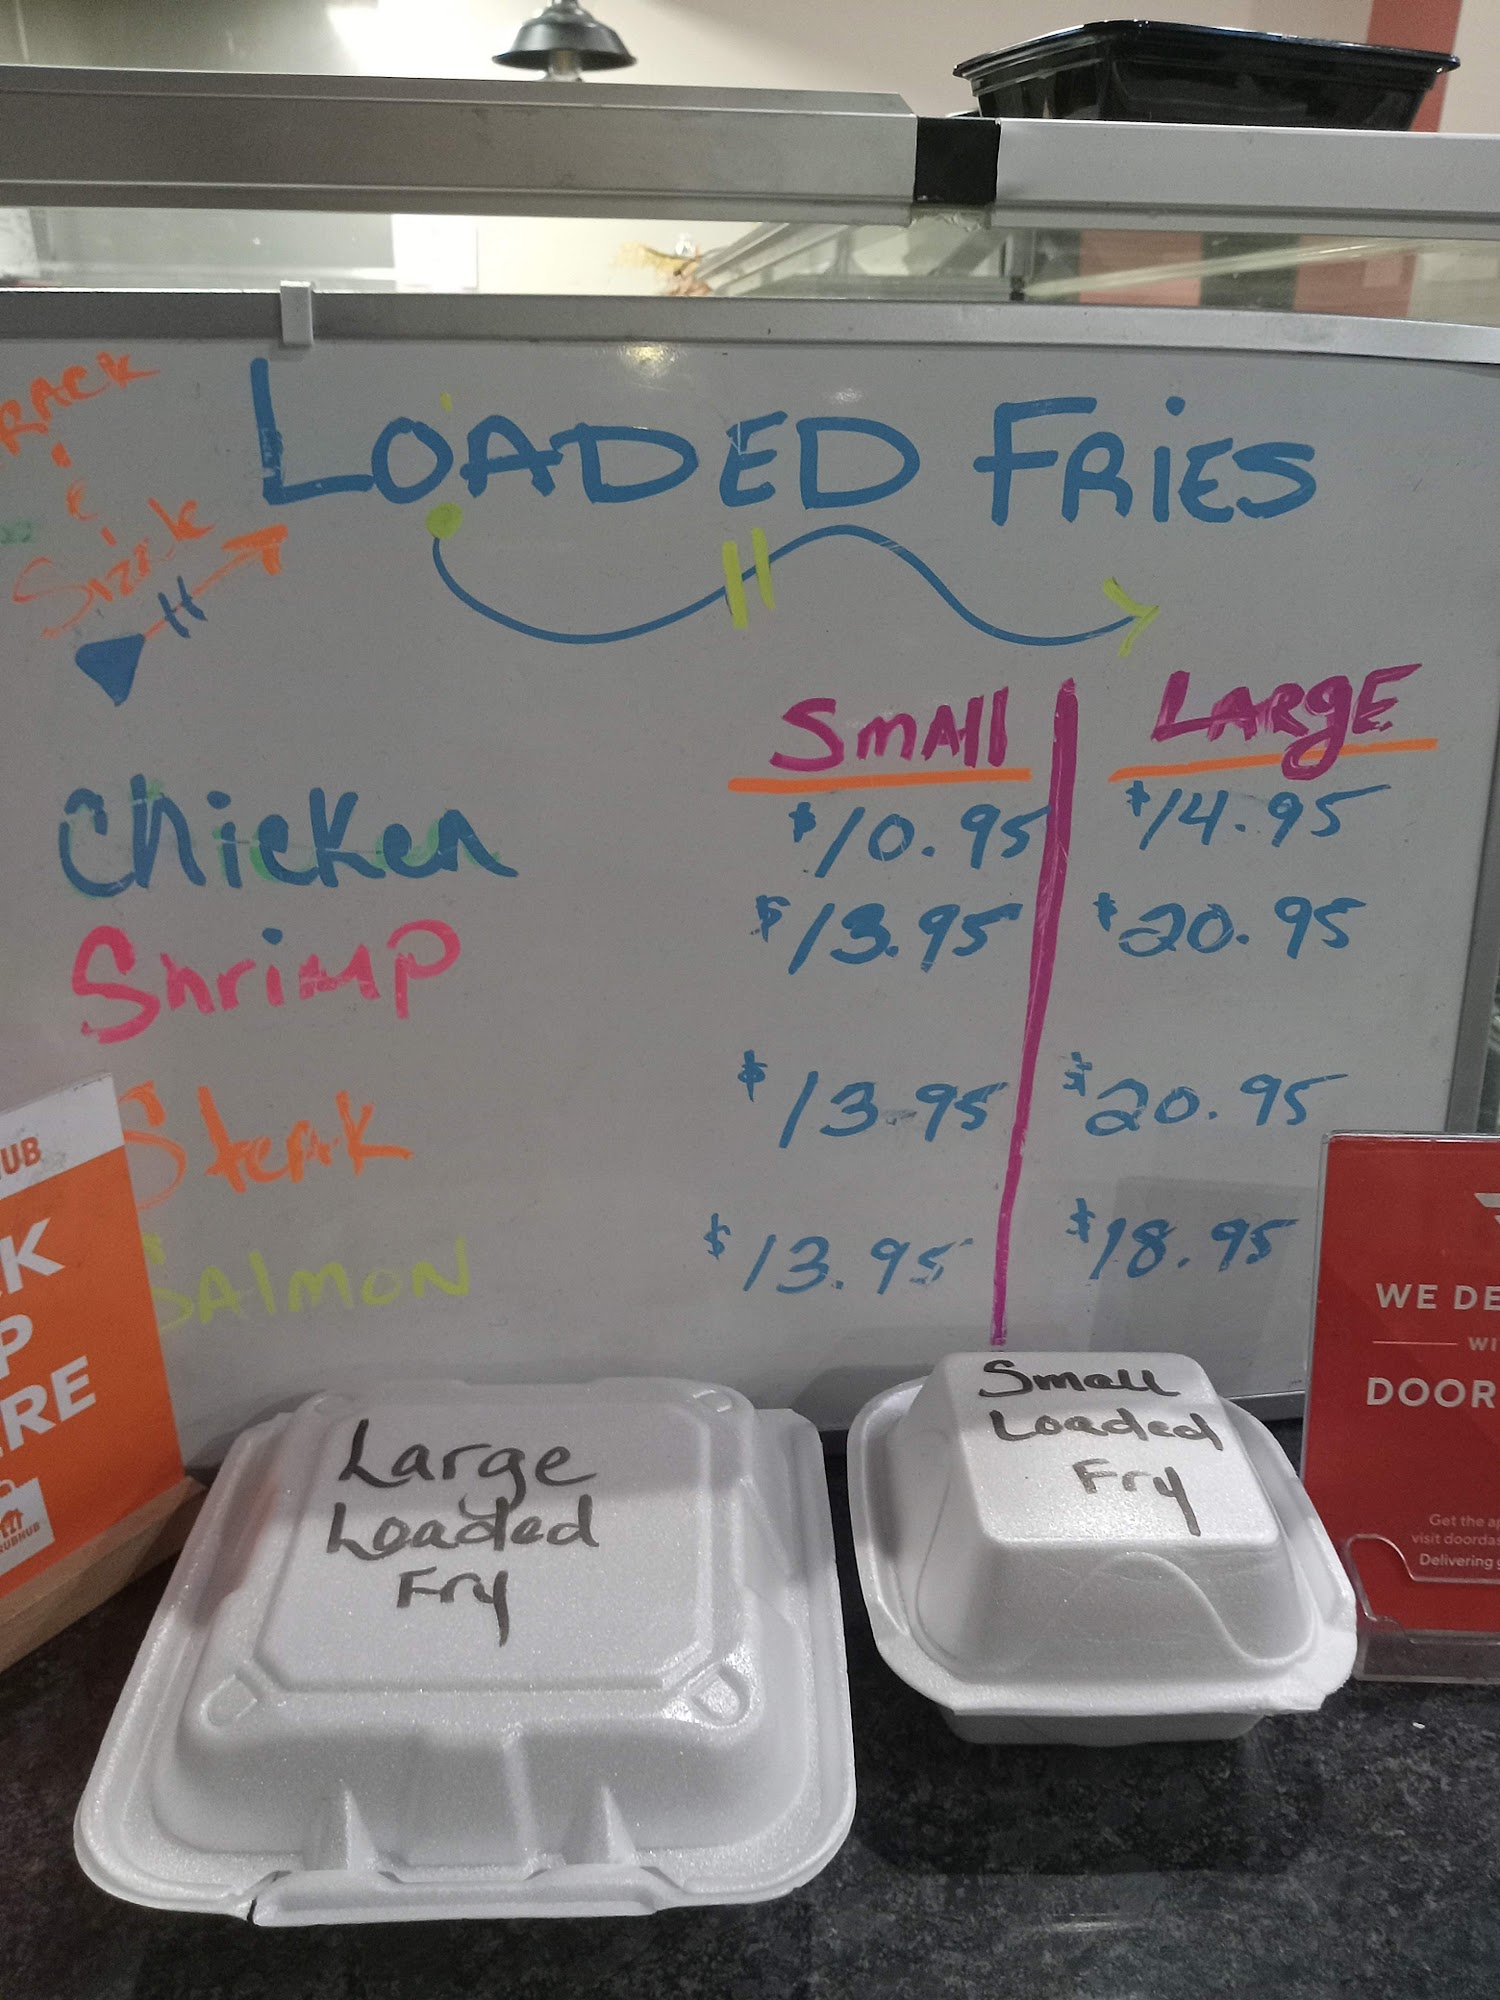 RACK
Sizzle
LOADED FRIES
Small LARGE
Chicken $10.95 $14.95
Shrimp $13.95 $20.95
Steak $13.95 $20.95
SALMON $13.95 $18.95
UB
K
P
RE
RUBHUB
Large
Loaded
Fry
Small
Loaded
Fry
WE DE
WI
DOOR
Get the ap
visit doordas
Delivering g